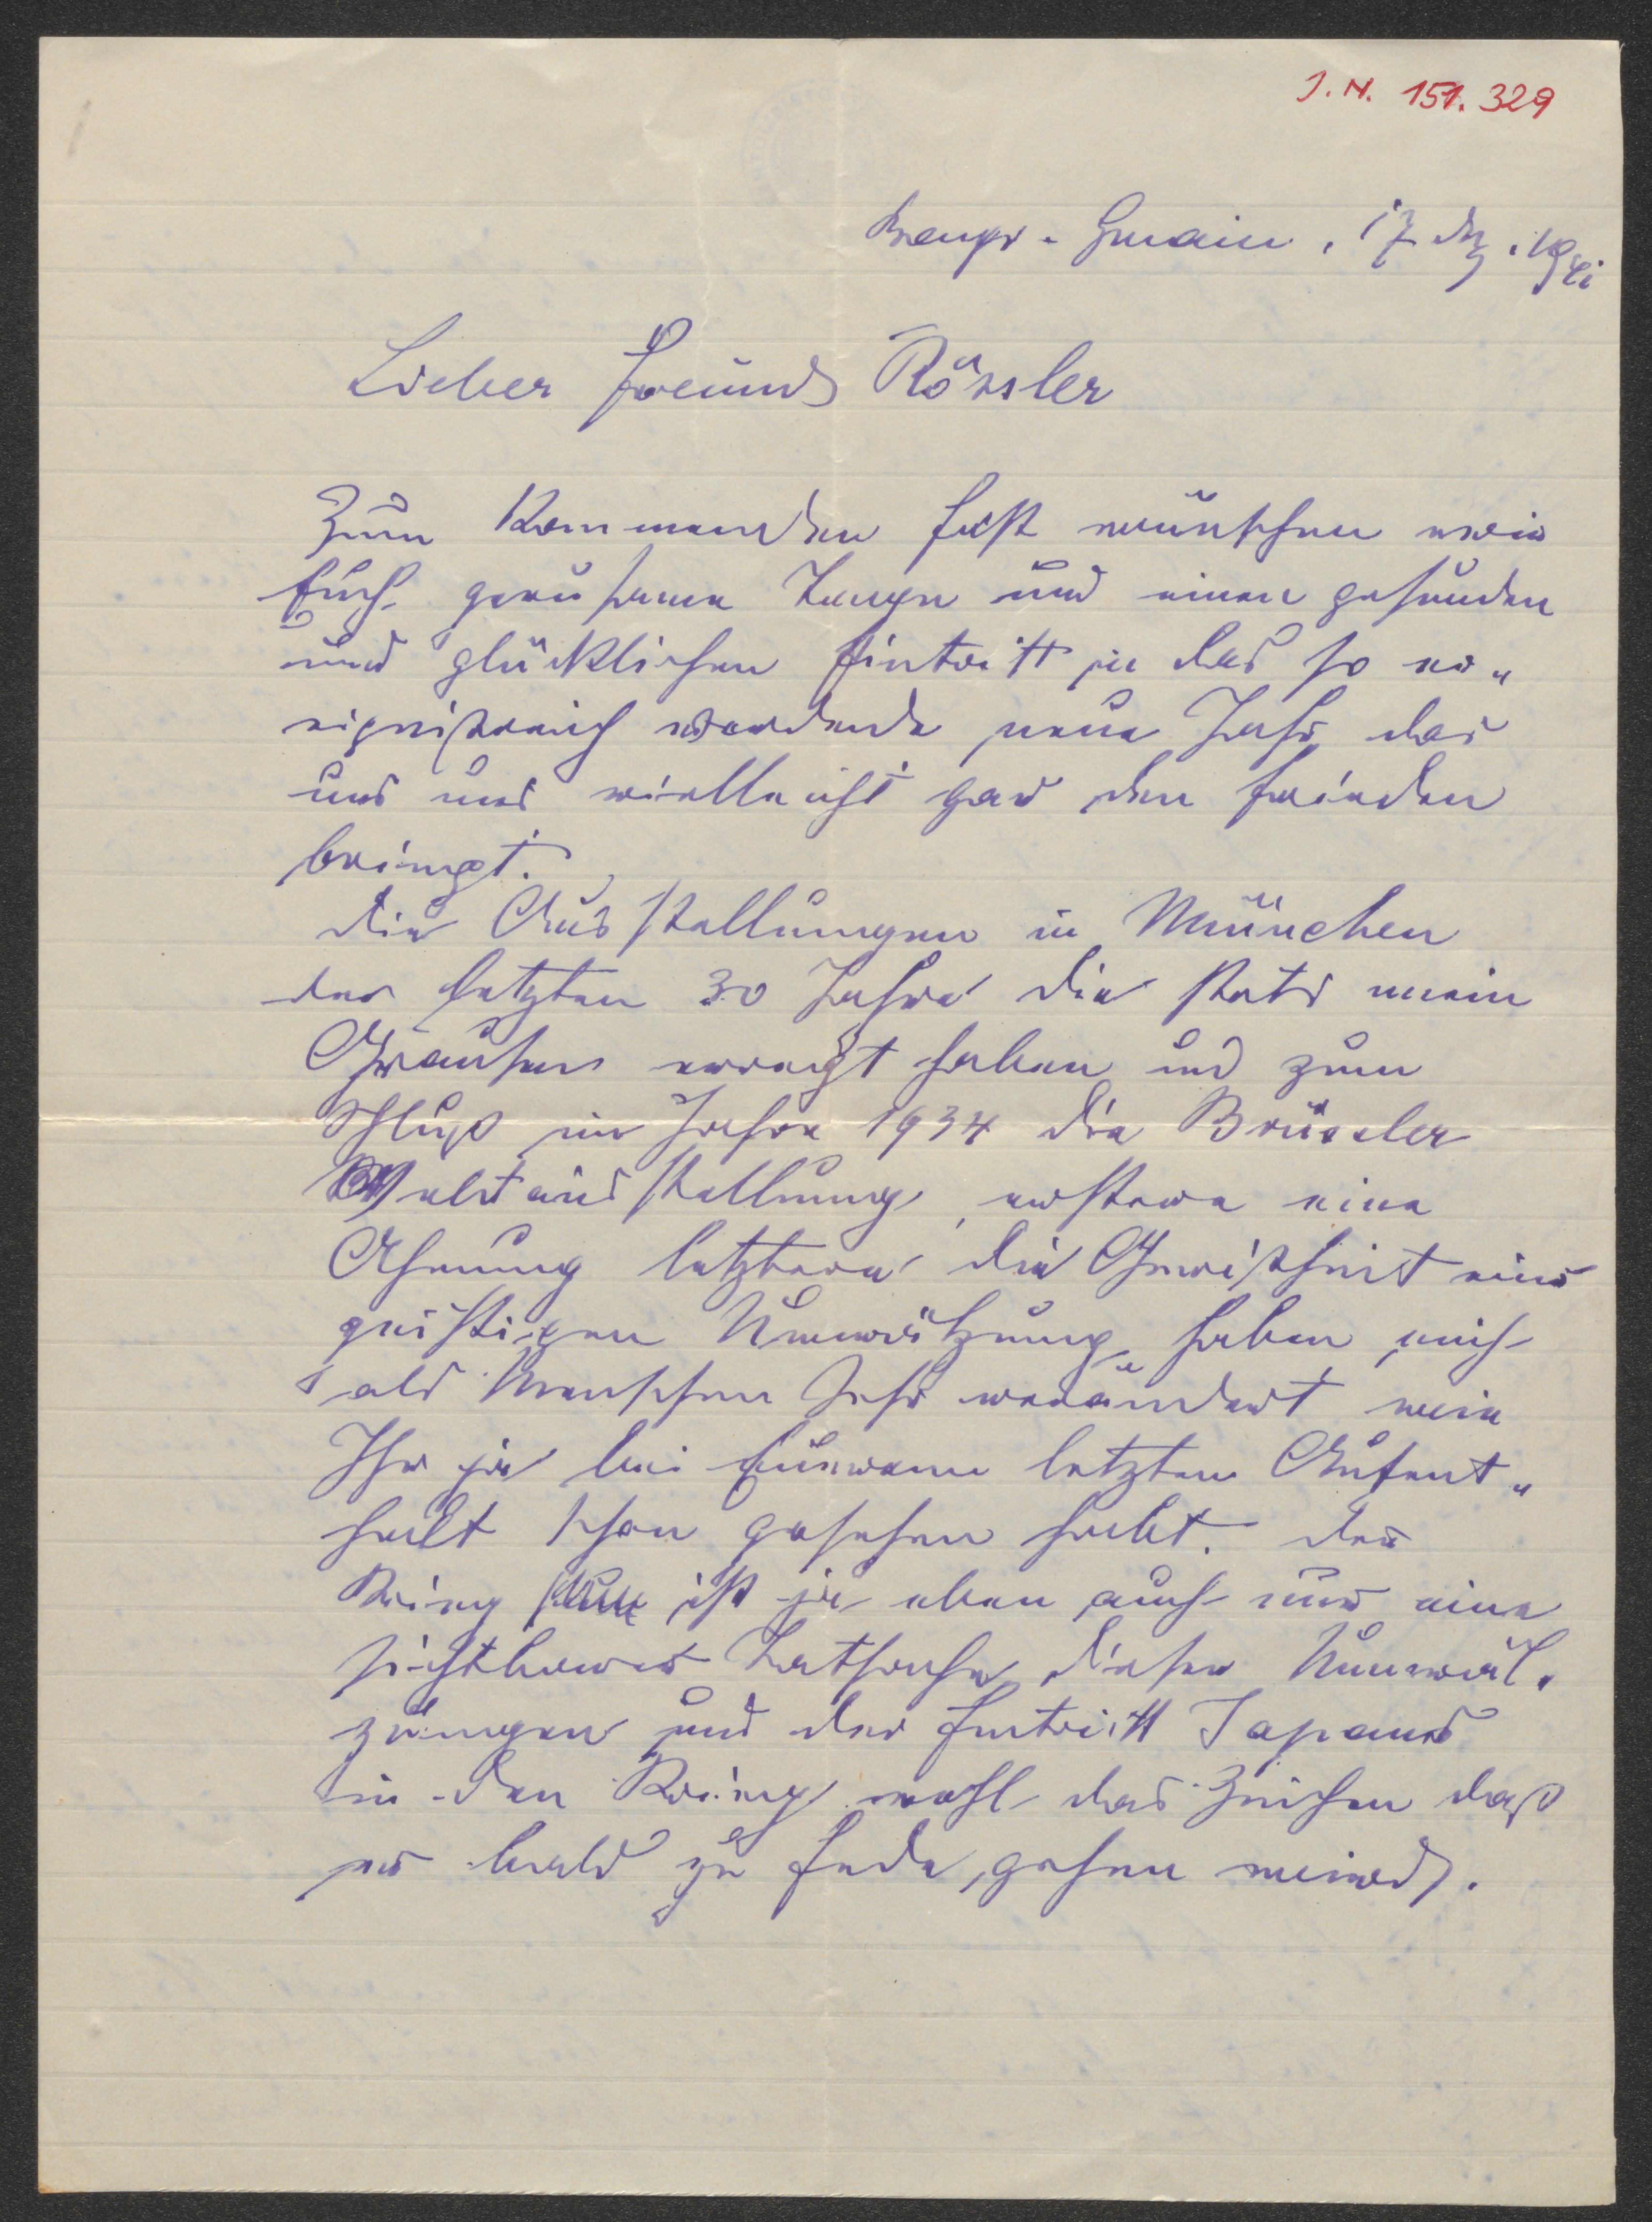 I.N. 151.329
Bayr. Gmain, 17 Dez. 1941
Lieber Freund Rössler
Zum kommenden Fest wünschen wir
Euch geruhsame Tage und einen gesunden
und glücklichen Eintritt in das so er„
eignißreich werdende neue Jahr das
uns vielleicht gar den Frieden
bringt.
Die Ausstellungen in München
der letzten 30 Jahre die stets mein
Grausen erregt haben und zum
Schluß im Jahre 1934 die Brüsseler
Weltausstellung, erstere eine
Ahnung letztere die Gewißheit einer
geistigen Umwälzung haben mich
als Menschen sehr verändert wie
Ihr ja bei Euerem letzten Aufent„
halt schon gesehen habt. Der
Krieg ist ja eben auch nur eine
sichtbare Tatsache dieser Umwäl„
zungen und der Eintritt Japans
in den Krieg wohl das Zeichen daß
es bald zu Ende gehen wird.